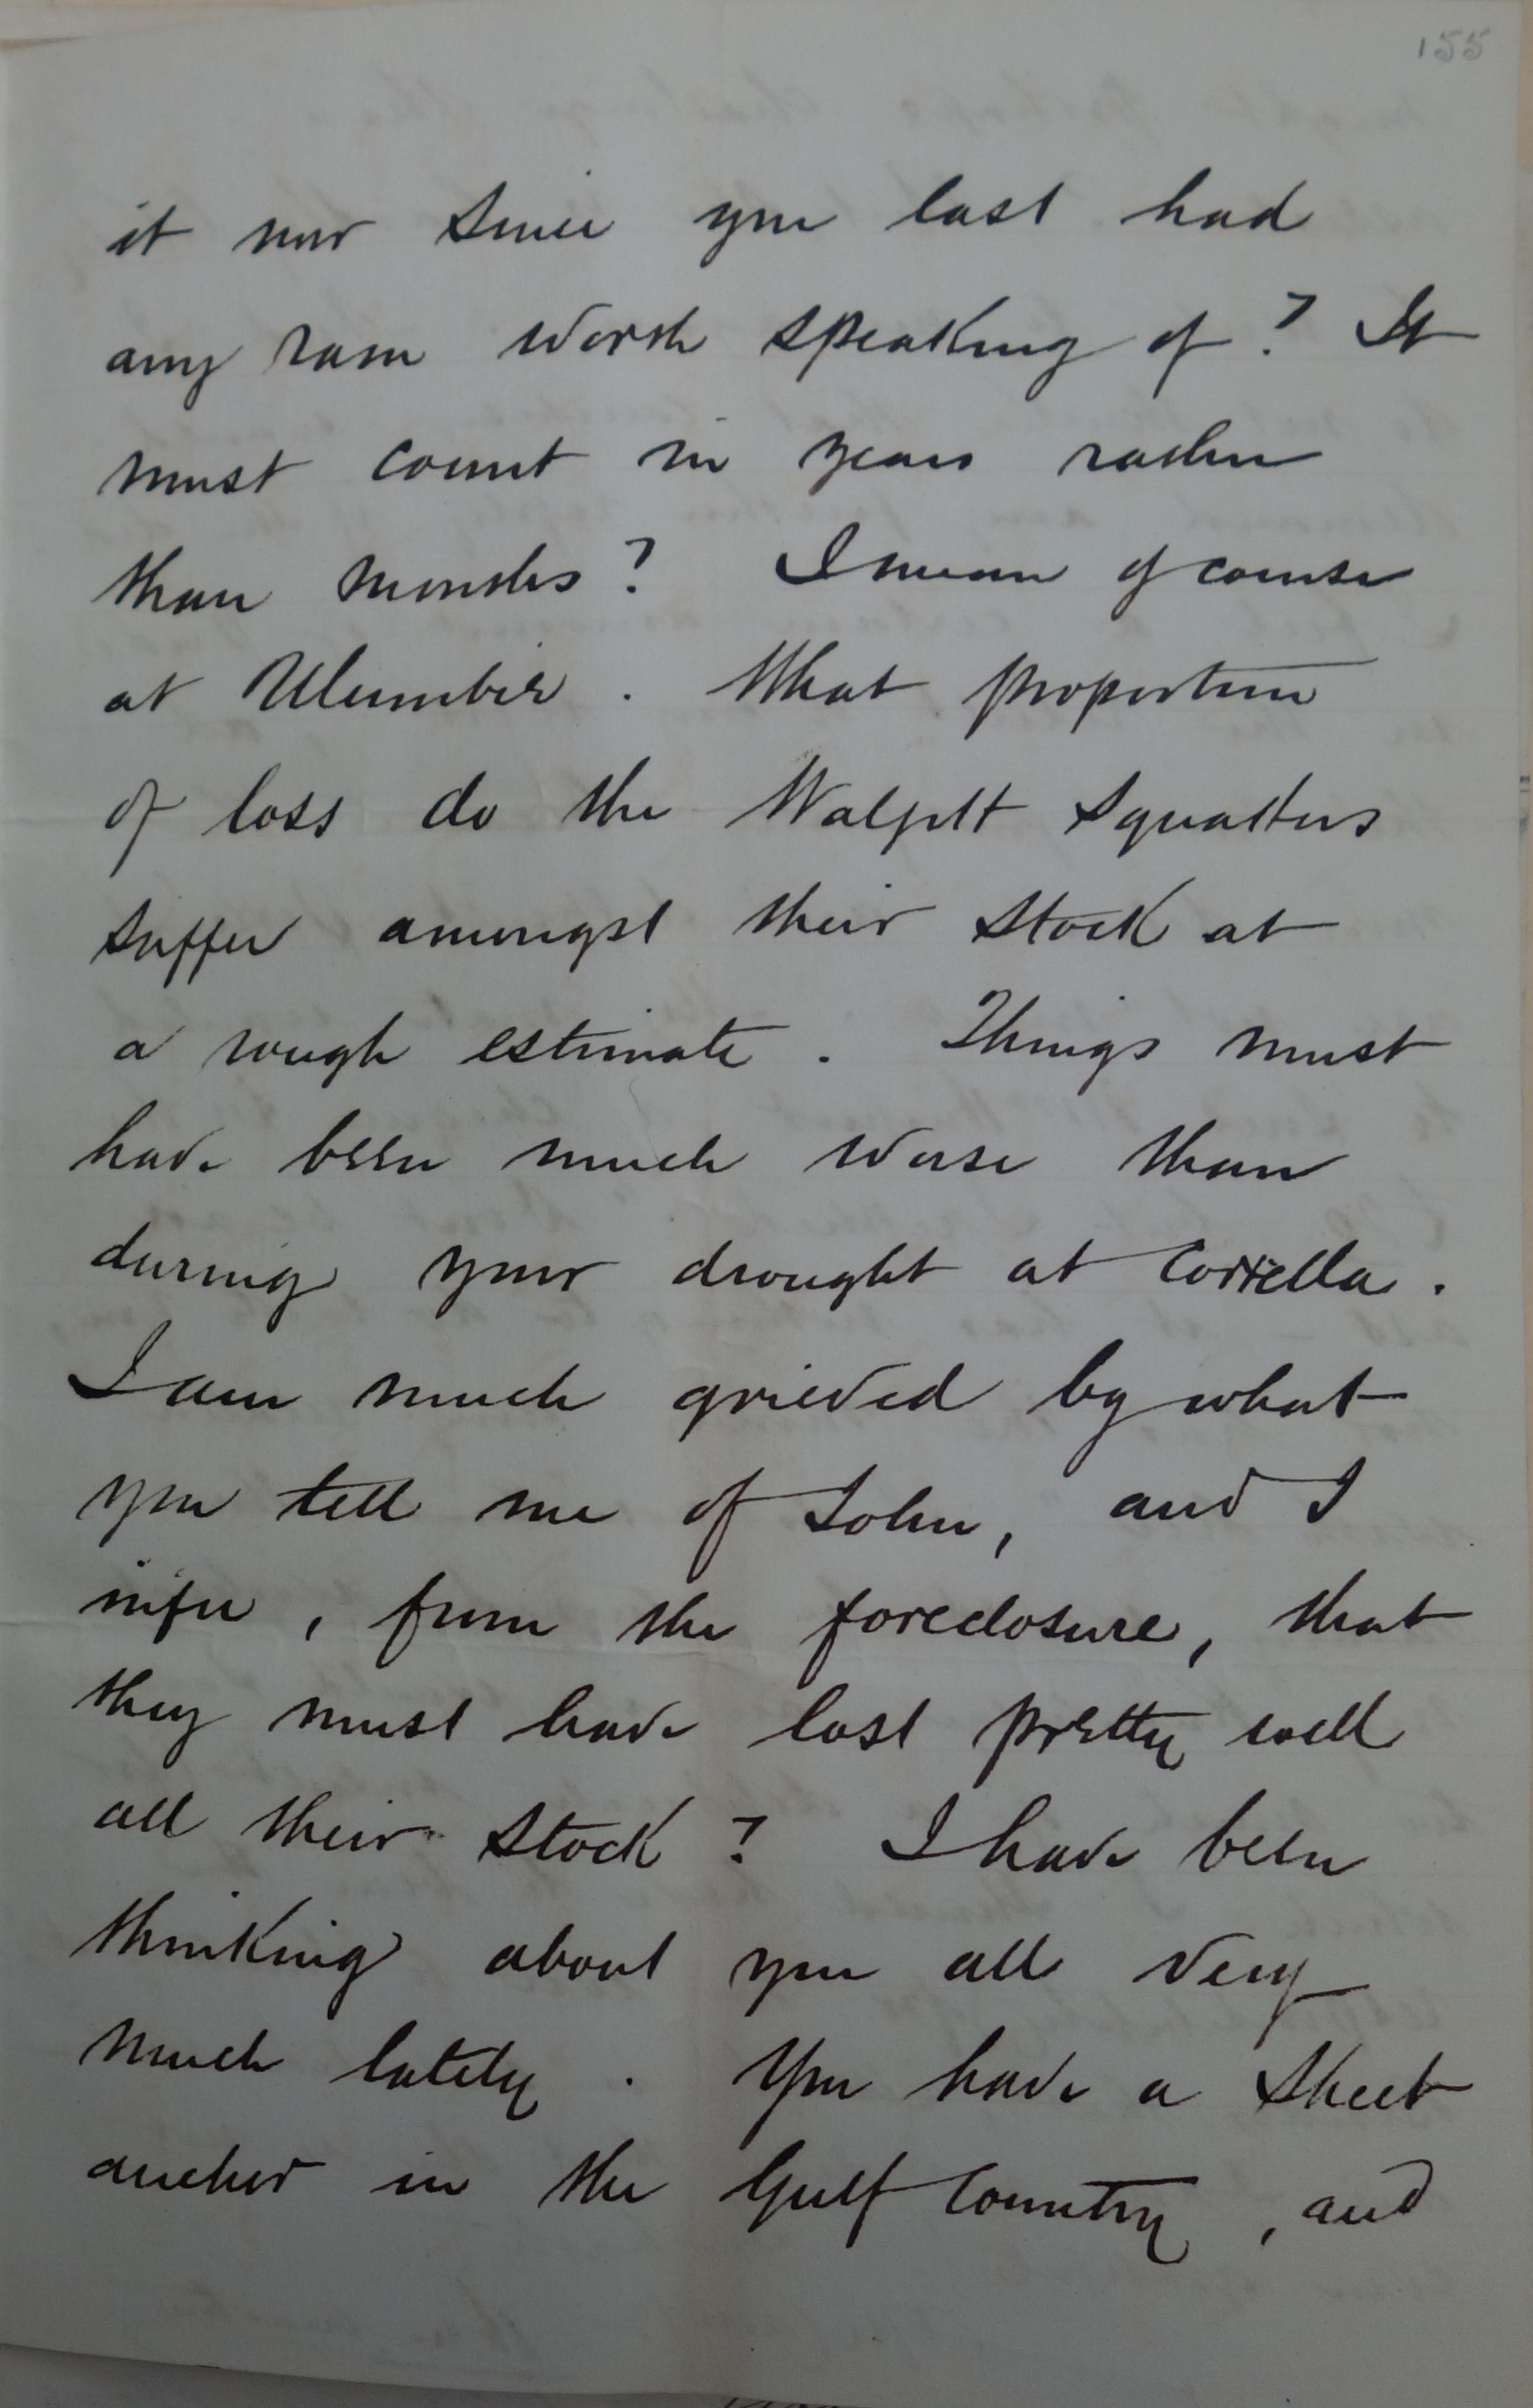 155
it now since you last had
any rain worth speaking of? It
must count in years rather
than months? I mean of course
at Ulumbie. What proportion
of loss do the Walgett Squatters
suffer amongst their stock at
a rough estimate. Things must
have been much worse than
during your drought at Corella.
I am much grieved by what
you tell me of John, and I
infer, from the foreclosure, that
they must have lost pretty well
all their stock? I have been
thinking about you all very
much lately. You have a sheet
anchor in the Gulf Country, and